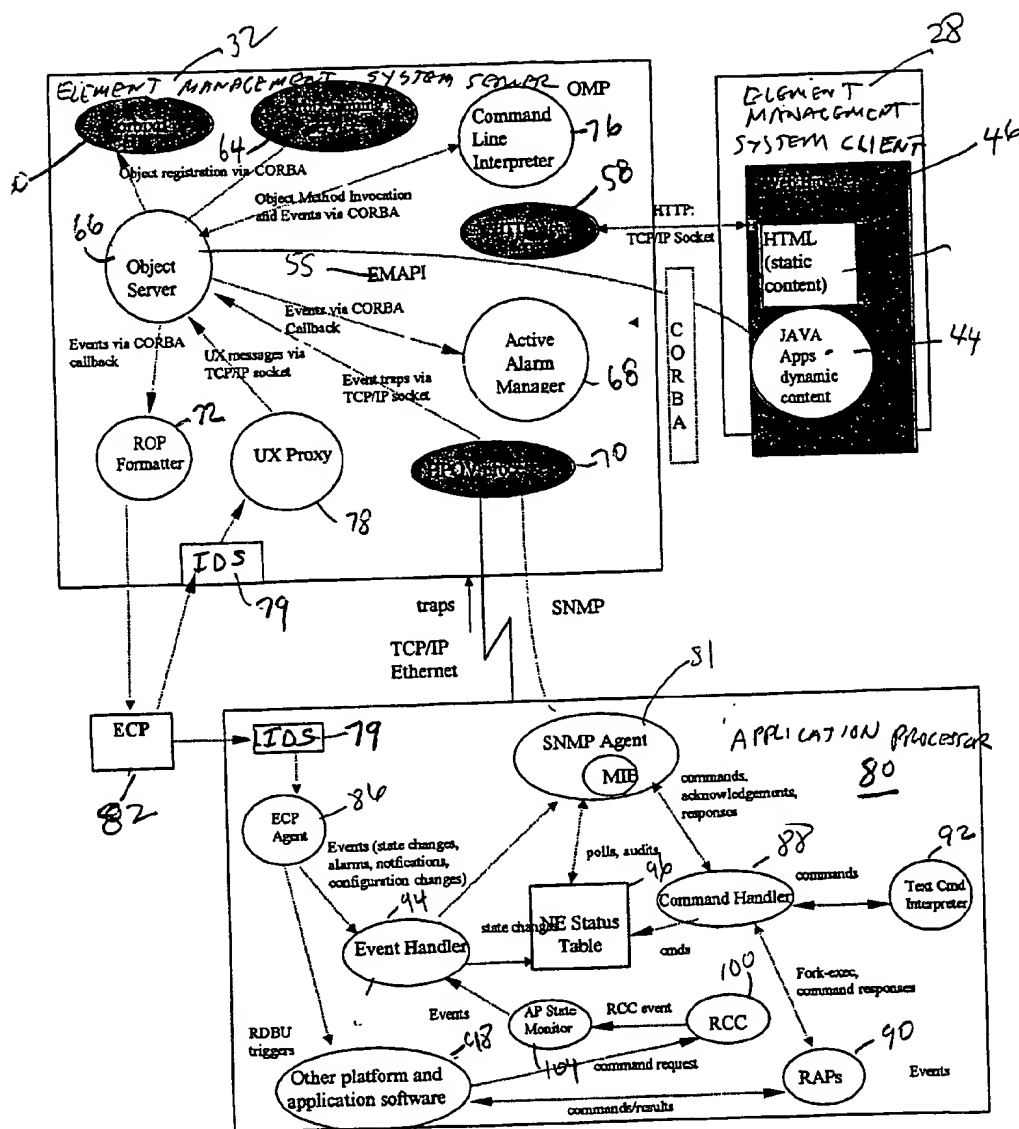 32
28
ELEMENT MANAGEMENT SYSTEM SERVER
OMP
ELEMENT
MANAGEMENT
SYSTEM CLIENT
46
64
Command
Line
Interpreter
76
Object registration via CORBA
58
Object Method Invocation
and Events via CORBA
HTTP:
TCP/IP Socket
HTML
(static
content)
66
Object
Server
55
EMAPI
Events via CORBA
Callback
Events via CORBA
callback
UX messages via
TCP/IP socket
Event traps via
TCP/IP socket
Active
Alarm
Manager
68
CORBA
JAVA
Apps
dynamic
content
44
72
ROP
Formatter
UX Proxy
78
70
IDS
79
traps
SNMP
TCP/IP
Ethernet
81
ECP
82
IDS
79
SNMP Agent
MIB
APPLICATION PROCESSOR
80
ECP
Agent
86
commands,
acknowledgements,
responses
Events (state changes,
alarms, notfications,
configuration changes)
polls, audits
96
88
commands
92
94
Command Handler
Text Cmd
Interpreter
Event Handler
state changes
NE Status
Table
cmds
100
Fork-exec,
command responses
RDBU
triggers
Events
AP State
Monitor
RCC event
RCC
98
104
command request
90
Other platform and
application software
RAPs
Events
commands/results